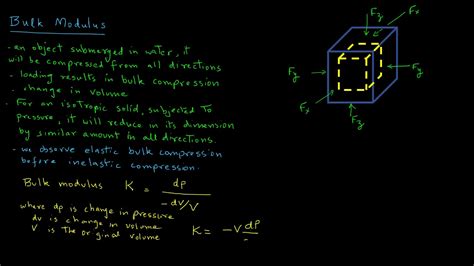 Bulk Modulus
- an object submerged in water, it
will be compressed from all directions
- loading results in bulk compression
- change in volume
- For an isotropic solid, subjected to
pressure, it will reduce in its dimension
by similar amount in all directions.
- we observe elastic bulk compression
before inelastic compression.
Bulk modulus K = dp / -dv/V
where dp is change in pressure
dv is change in volume
V is the original volume
K = -V dP
Fz
Fx
Fy
Fy
Fx
Fz